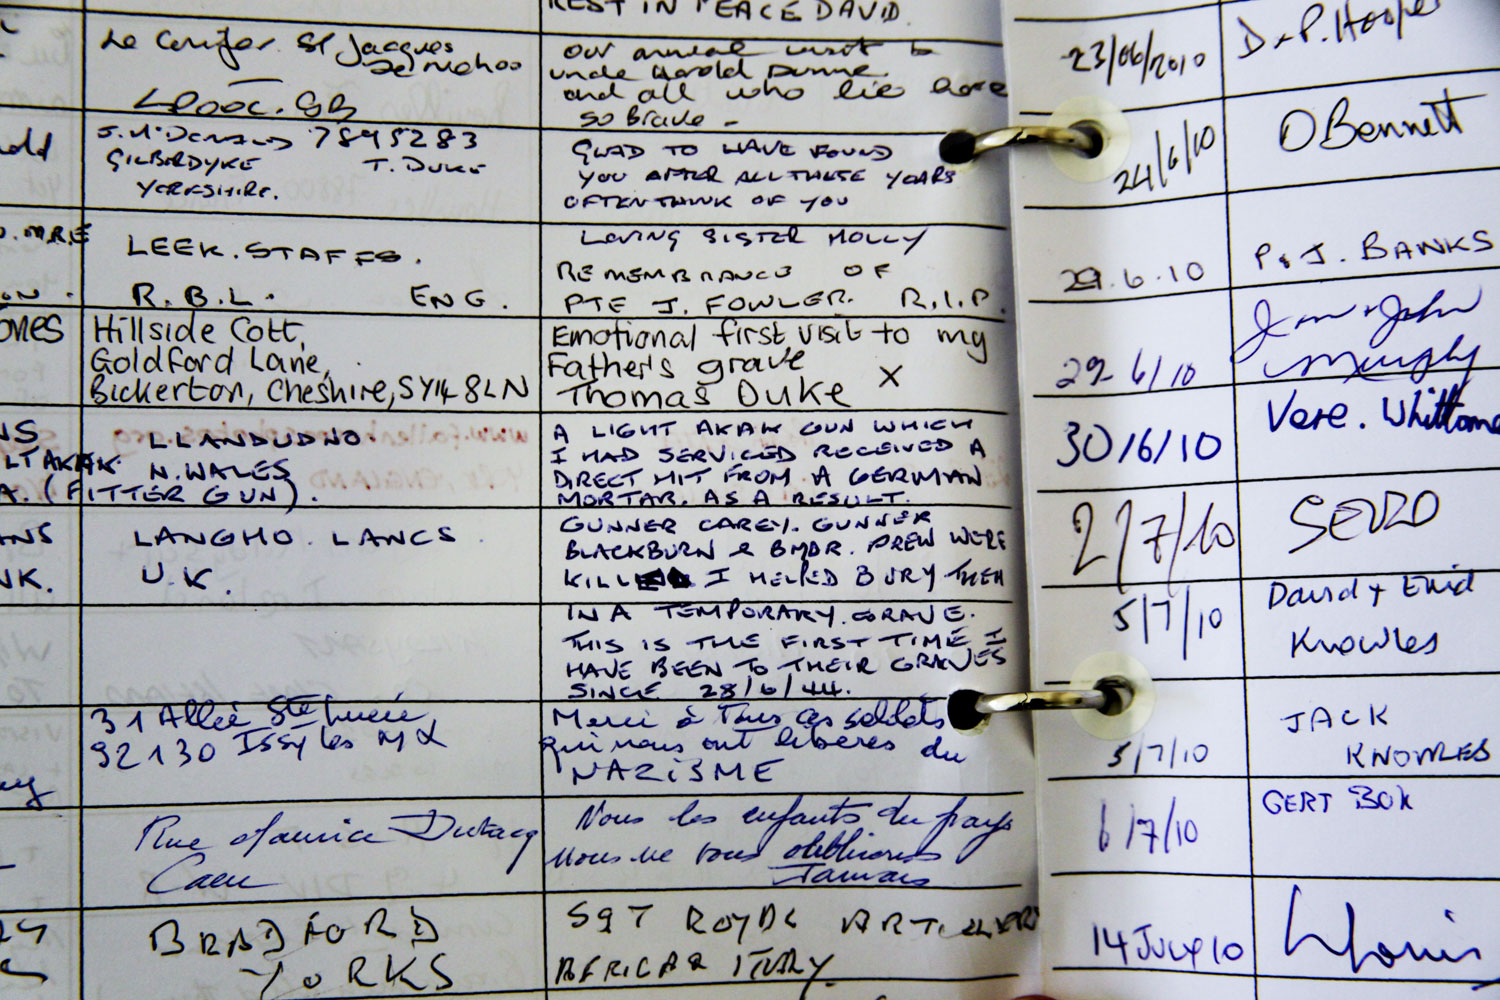 REST IN PEACE DAVID.
St Jacques
our annual visit to
uncle Harold Dunne.
and all who lie here
so Brave -
7845283
GILBERDYKE T. DUKE
YORKSHIRE.
GLAD TO HAVE FOUND
YOU AFTER ALL THESE YEARS
OFTEN THINK OF YOU
LOVING SISTER MOLLY
LEEK. STAFFS.
R.B.L. ENG.
REMEMBRANCE OF
PTE J. FOWLER. R.I.P.
Hillside Cott,
Goldford Lane,
Bickerton, Cheshire, SY14 8LN
Emotional first visit to my
Father's grave
Thomas Duke X
LLANDUDNO.
N. WALES
(FITTER GUN).
A LIGHT AKAK GUN WHICH
I HAD SERVICED RECEIVED A
DIRECT HIT FROM A GERMAN
MORTAR. AS A RESULT.
LANGHO. LANCS.
U.K.
GUNNER CAREY. GUNNER
BLACKBURN & BMDR. DREW WERE
KILLED I HELPED BURY THEM
IN A TEMPORARY. GRAVE.
THIS IS THE FIRST TIME I
HAVE BEEN TO THEIR GRAVES
SINCE 28/6/44.
31 Allée Ste Lucie
92130 Issy les Mx
Merci à Tous ces soldats
qui nous ont libérés du
NAZISME
Rue Maurice
Caen
Nous les enfants du pays
Nous ne vous oublierons
Jamais
BRADFORD
YORKS
SGT ROYAL ARTILLERY
AFRICA & ITALY
23/06/2010 D & P. Hooper
24/6/10 O Bennett
29.6.10 P & J. BANKS
29 6/10 John
30/6/10 Vere. Whittome
2/7/10
5/7/10 David + Enid
Knowles
5/7/10 JACK
KNOWLES
6/7/10 GERT BOK
14 JULY 10